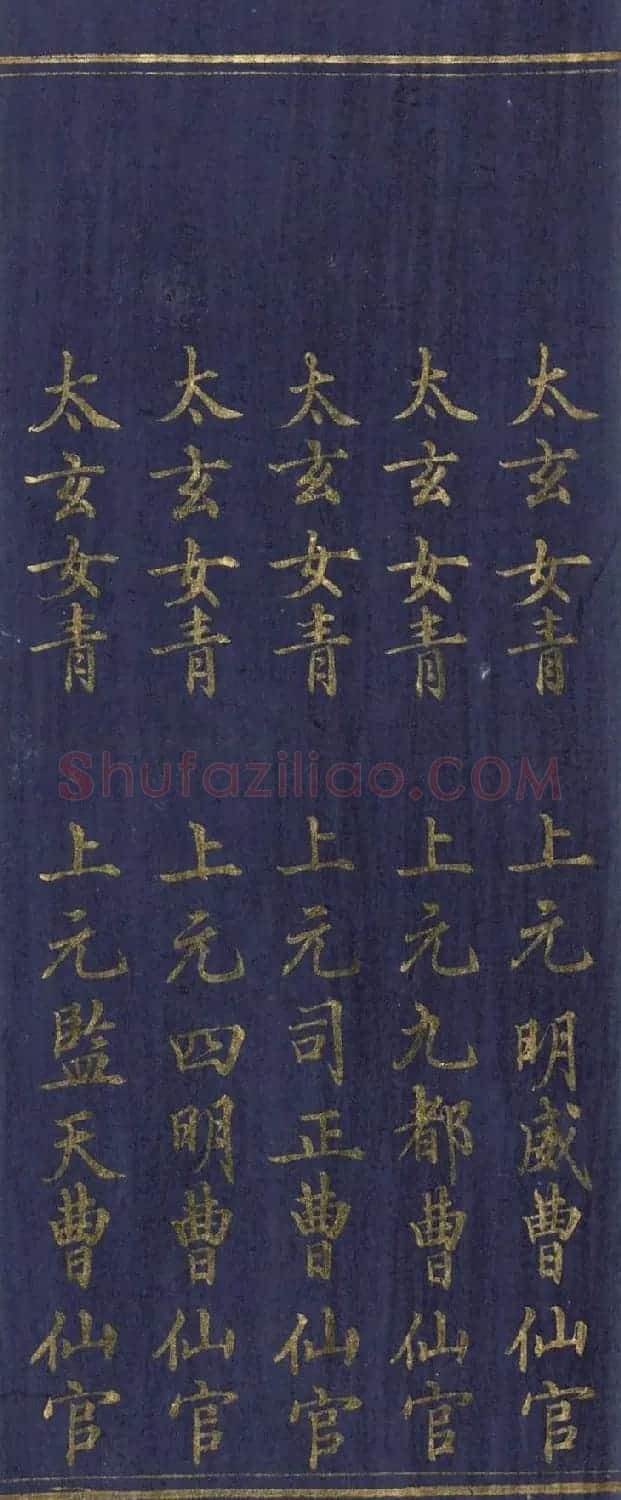 太玄女青 上元明威曹仙官
太玄女青 上元九都曹仙官
太玄女青 上元司正曹仙官
太玄女青 上元四明曹仙官
太玄女青 上元監天曹仙官
Shufaziliao.COM